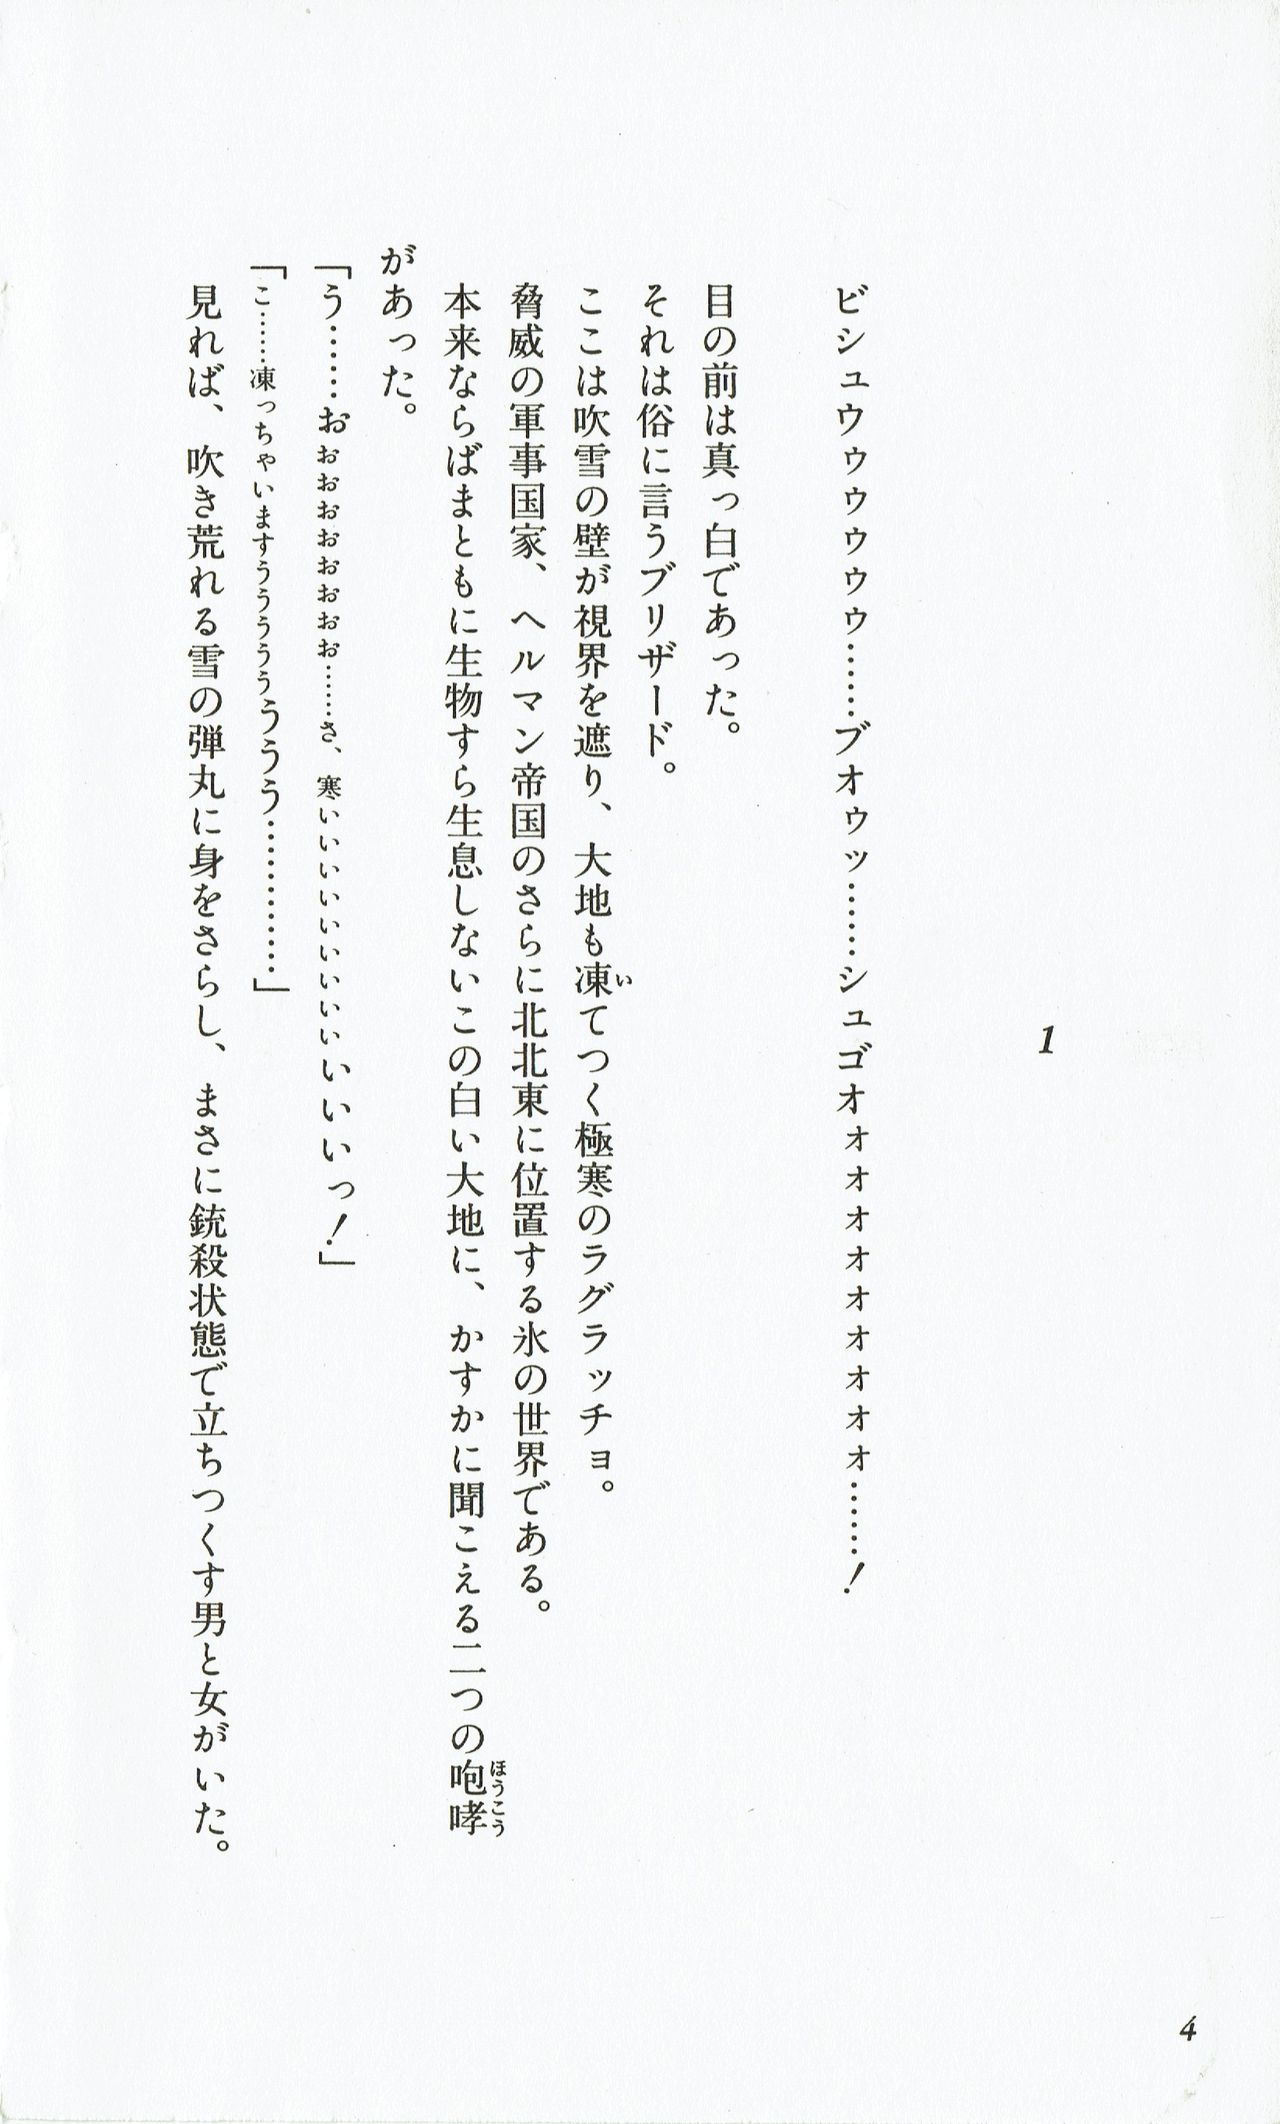 1
ビシュウゥゥゥゥゥ……ブオゥッ……シュゴオォォォォォォォォォ……！
目の前は真っ白であった。
それは俗に言うブリザード。
ここは吹雪の壁が視界を遮り、大地も凍てつく極寒のラグラッチョ。
脅威の軍事国家、ヘルマン帝国のさらに北北東に位置する氷の世界である。
本来ならばまともに生物すら生息しないこの白い大地に、かすかに聞こえる二つの咆哮
があった。
「う……おぉぉぉぉぉぉぉぉ……さ、寒いいいいいいいいいいいいっ！」
「こ……凍っちゃいますうううううううう…………」
見れば、吹き荒れる雪の弾丸に身をさらし、まさに銃殺状態で立ちつくす男と女がいた。
4